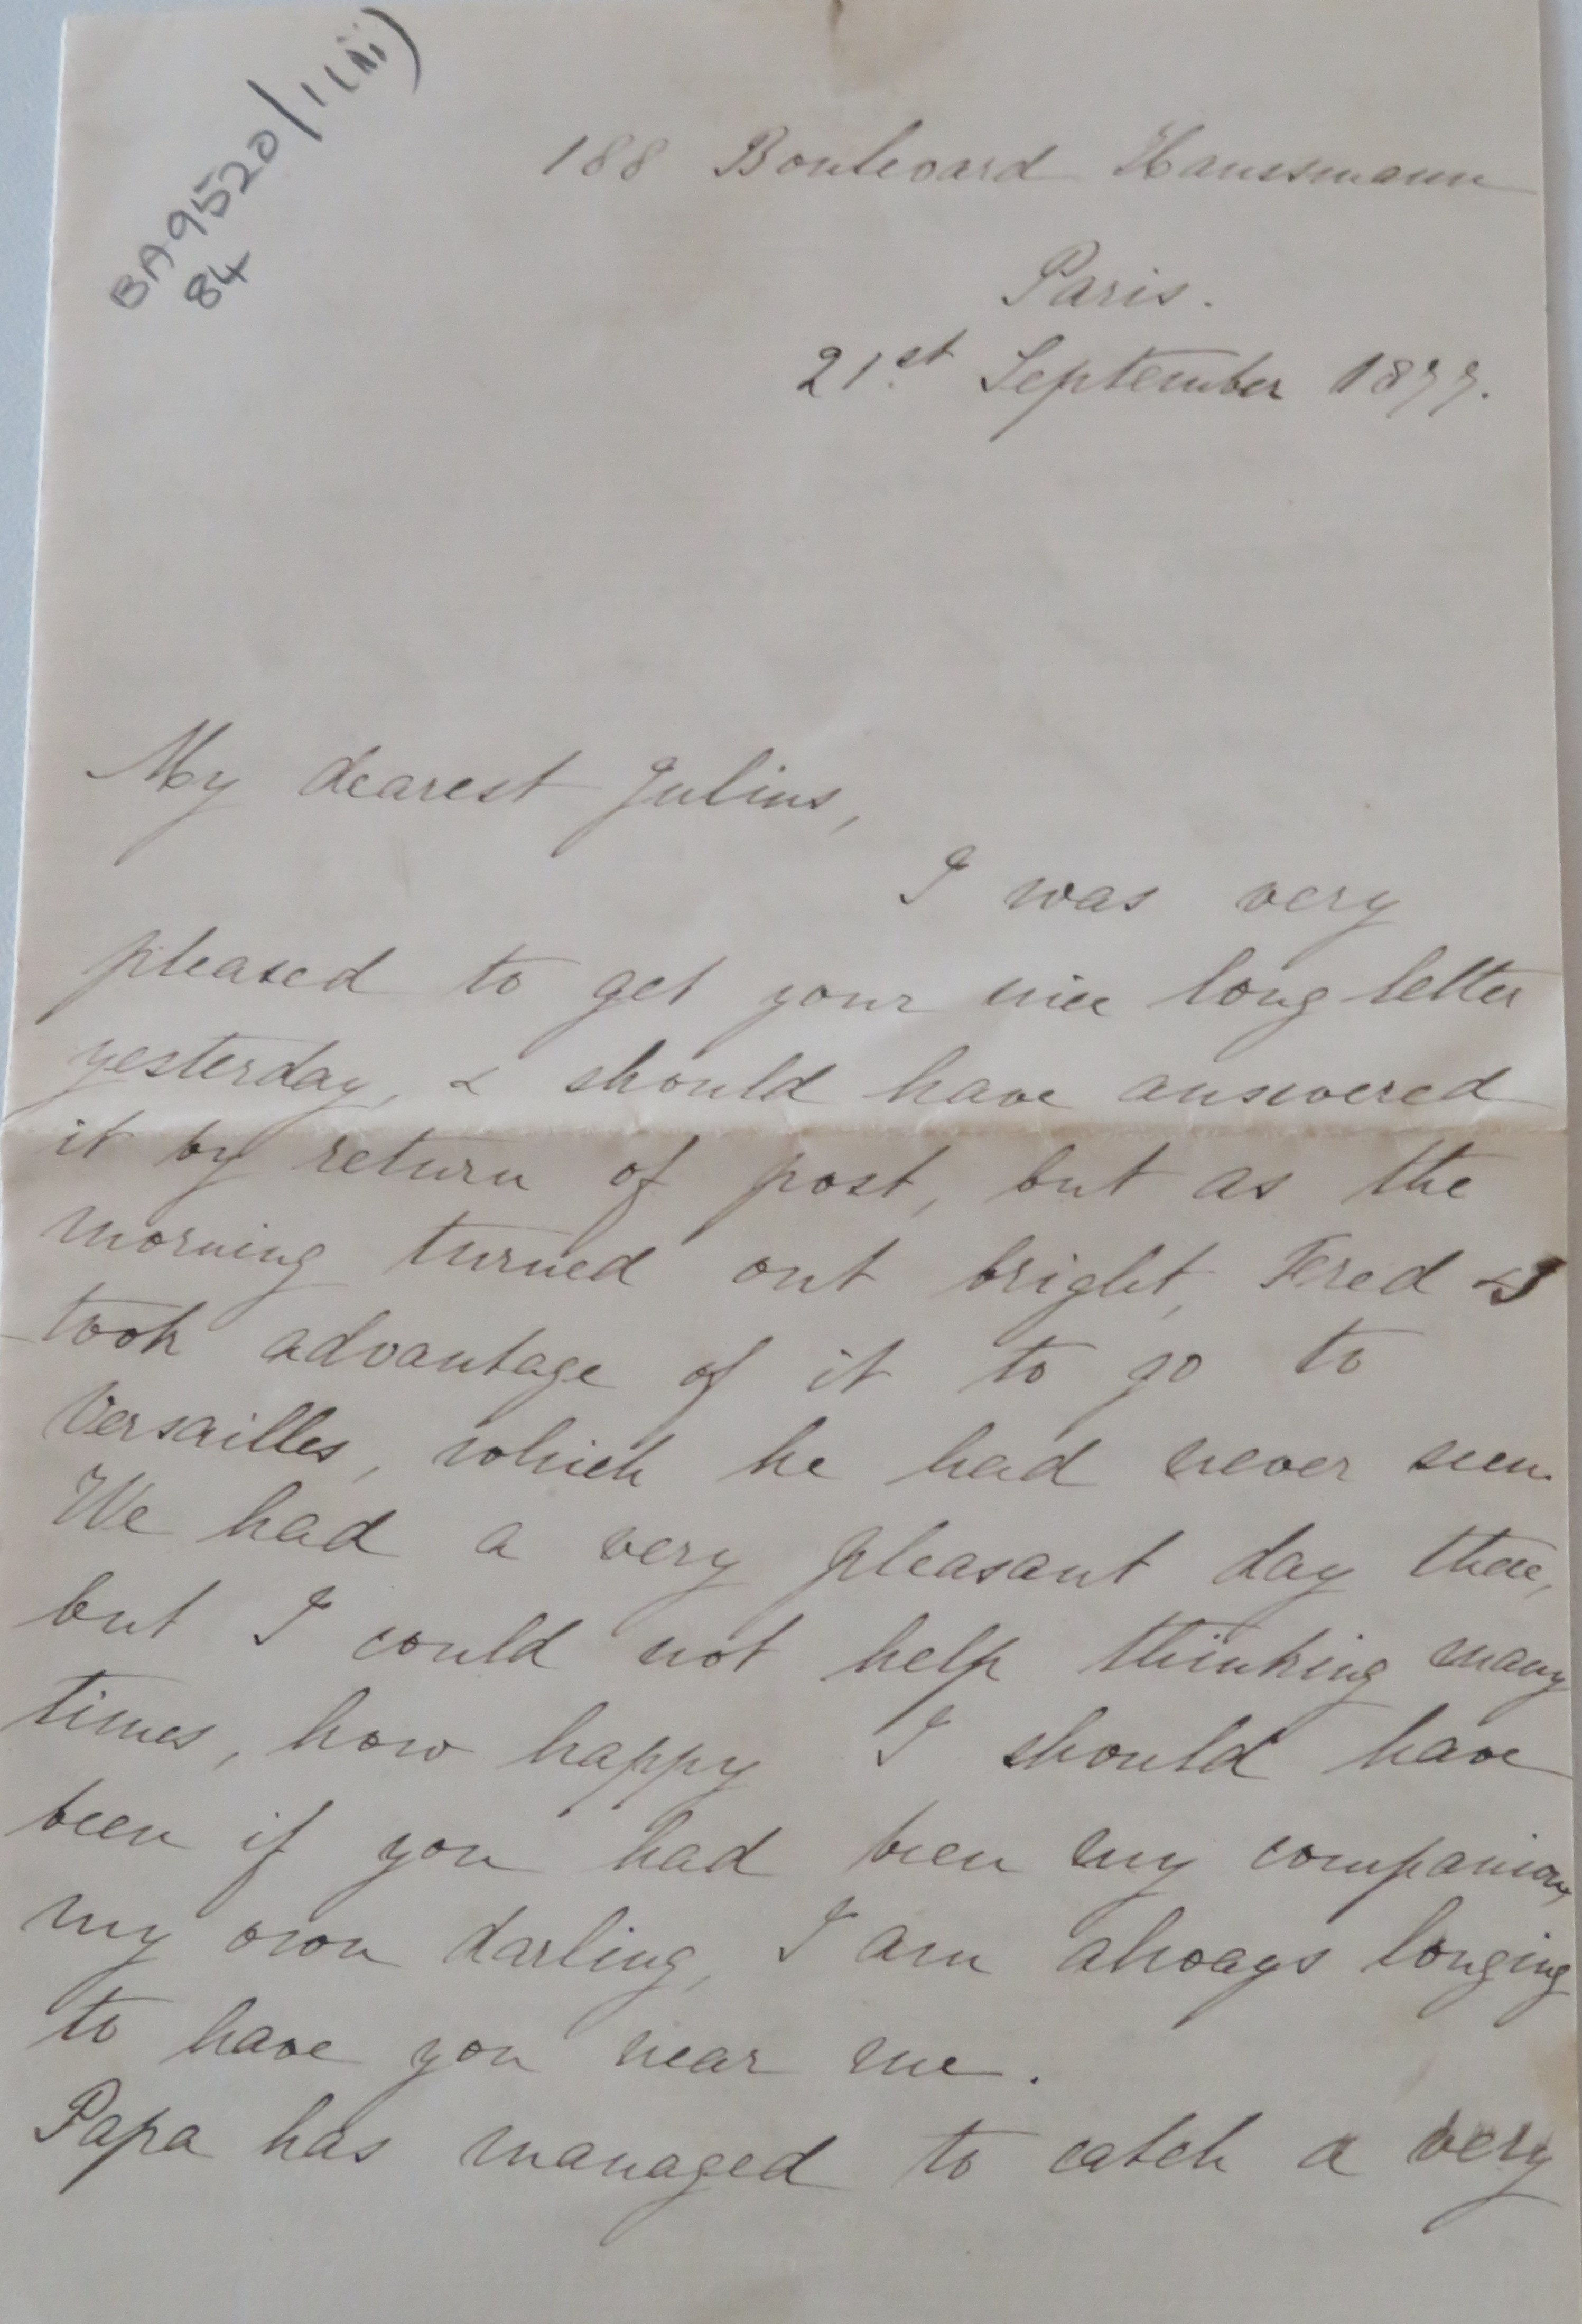 BA9520/1(iii)
84
188 Boulevard Haussmann
Paris.
21st September 1877.
My dearest Julius,
I was very
pleased to get your nice long letter
yesterday, & should have answered
it by return of post, but as the
morning turned out bright, Fred & I
took advantage of it to go to
Versailles, which he had never seen.
We had a very pleasant day there,
but I could not help thinking many
times, how happy I should have
been if you had been my companion,
my own darling, I am always longing
to have you near me.
Papa has managed to catch a very